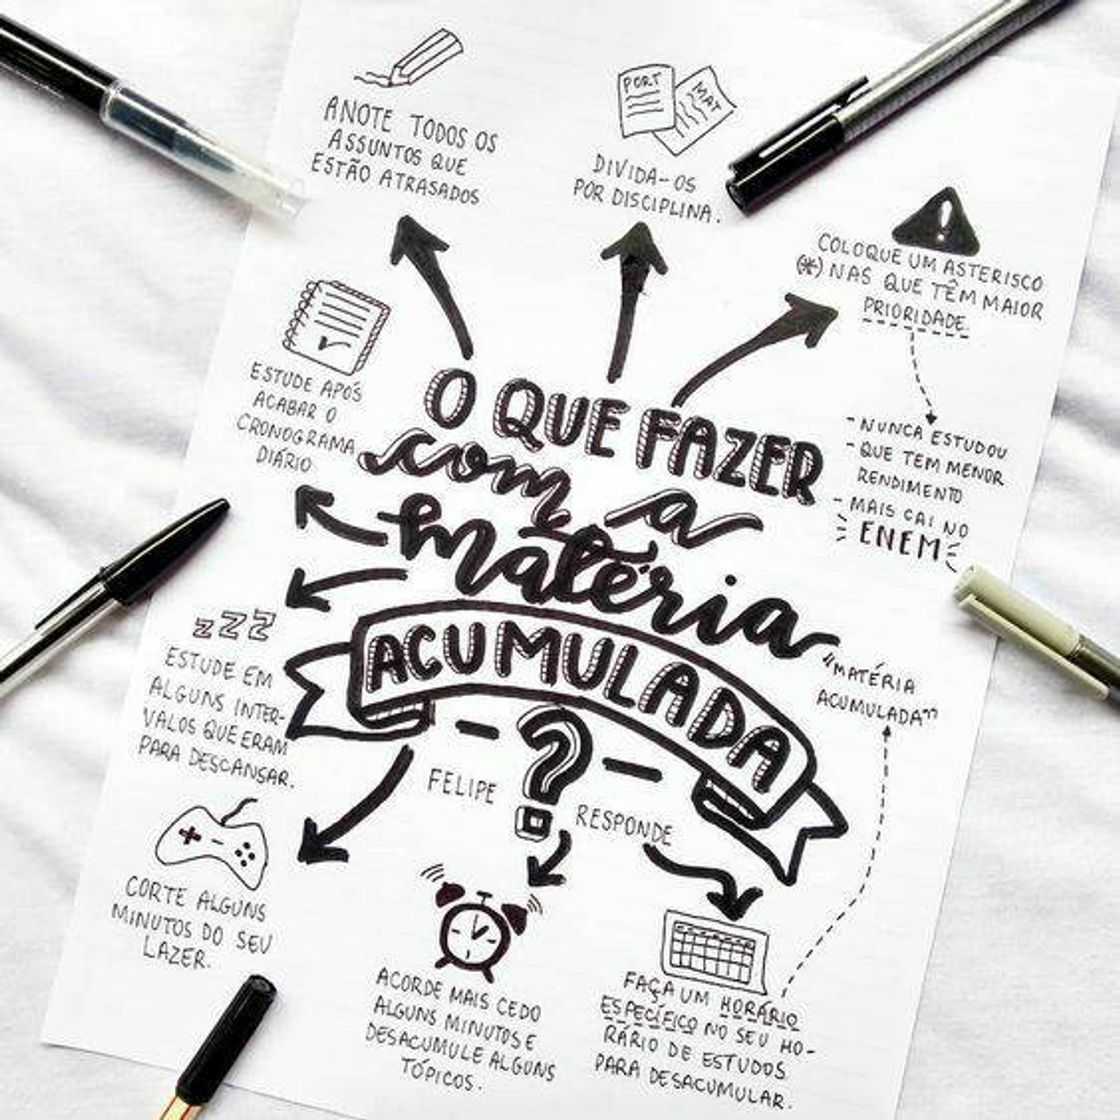 ANOTE TODOS OS
ASSUNTOS QUE
ESTÃO ATRASADOS
PORT
MAT
DIVIDA-OS
POR DISCIPLINA.
!
COLOQUE UM ASTERISCO
(*) NAS QUE TÊM MAIOR
PRIORIDADE.
- NUNCA ESTUDOU
- QUE TEM MENOR
RENDIMENTO
- MAIS CAI NO
ENEM
ESTUDE APÓS
ACABAR O
CRONOGRAMA
DIÁRIO
O QUE FAZER
com a
matéria
ACUMULADA
?
FELIPE
RESPONDE
"MATÉRIA
ACUMULADA"
zZZ
ESTUDE EM
ALGUNS INTER-
VALOS QUE ERAM
PARA DESCANSAR.
CORTE ALGUNS
MINUTOS DO SEU
LAZER.
ACORDE MAIS CEDO
ALGUNS MINUTOS E
DESACUMULE ALGUNS
TÓPICOS.
FAÇA UM HORÁRIO
ESPECÍFICO NO SEU HO-
RÁRIO DE ESTUDOS
PARA DESACUMULAR.